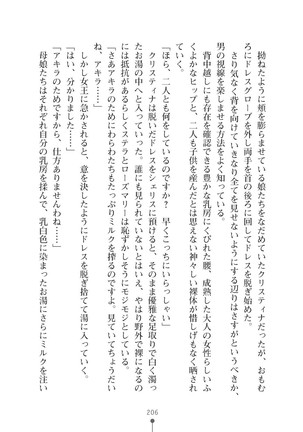 拗ねたように頬を膨らませている娘たちをなだめていたクリスティナだが、おもむ
ろにドレスグローブを外し両手を首の後ろに回してドレスを脱ぎ始めた。
さり気なく背を向けていきなり全てを見せないようにする辺りはさすがというべきか、
男の視線を楽しませる方法をよく知っている。
背中越しにも存在を確認できる豊かな乳房にくびれた腰、成熟した大人の女性らしいふ
くよかなヒップと、二人も子供を産んだとは思えない神々しい裸体が惜しげもなく晒され
ていく。
「ほら、二人とも何をしているのですか? 早くこっちにいらっしゃい」
クリスティナは脱いだドレスをシェリスに預けると、そのまま優雅な足取りで白く濁っ
たお湯の中へと入っていった。誰にも見られていないとはいえ、やはり野外で裸になるの
には抵抗があるらしくステラとローズマリーは恥ずかしそうにモジモジとしている。
「さあアキラのためにわらわたちもたっぷりミルクを搾るのですよ。見ていてちょうだい
ね、アキラ」
しかし女王に急かされると、意を決したようにドレスを脱ぎ捨てて湯に入っていく。
「はい、分かりました……」
「アキラのためですから、仕方ありませんわね……」
母娘たちはそれぞれ自分の乳房を揉んで、乳白色に染まったお湯にさらにミルクを注い
206